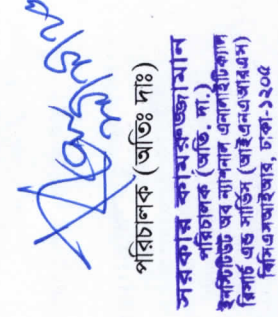 পরিচালক (অতিঃ দাঃ)
সরকার কামরুজ্জামান
পরিচালক (অতি. দা.)
ইনস্টিটিউট অব ন্যাশনাল এনালাইটিক্যাল
রিসার্চ এন্ড সার্ভিস (আইএনএআরএস)
বিসিএসআইআর, ঢাকা-১২০৫